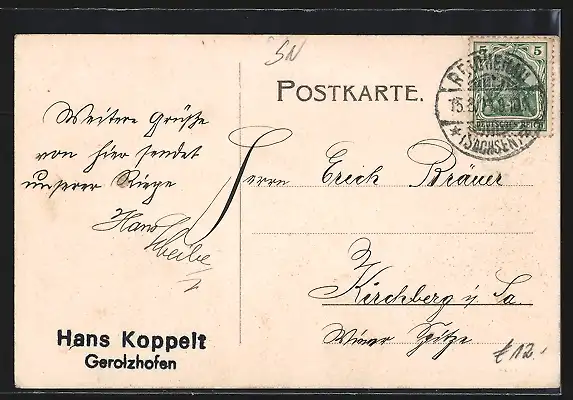 SN
POSTKARTE.
5 5
DEUTSCHES REICH
(SACHSEN)
Weitere Grüße
von hier sendet
unserer Riege
Hans
Herrn Erich Bräuer
Kirchberg i. Sa.
Wiener Spitze
Hans Koppelt
Gerolzhofen
€ 12.-